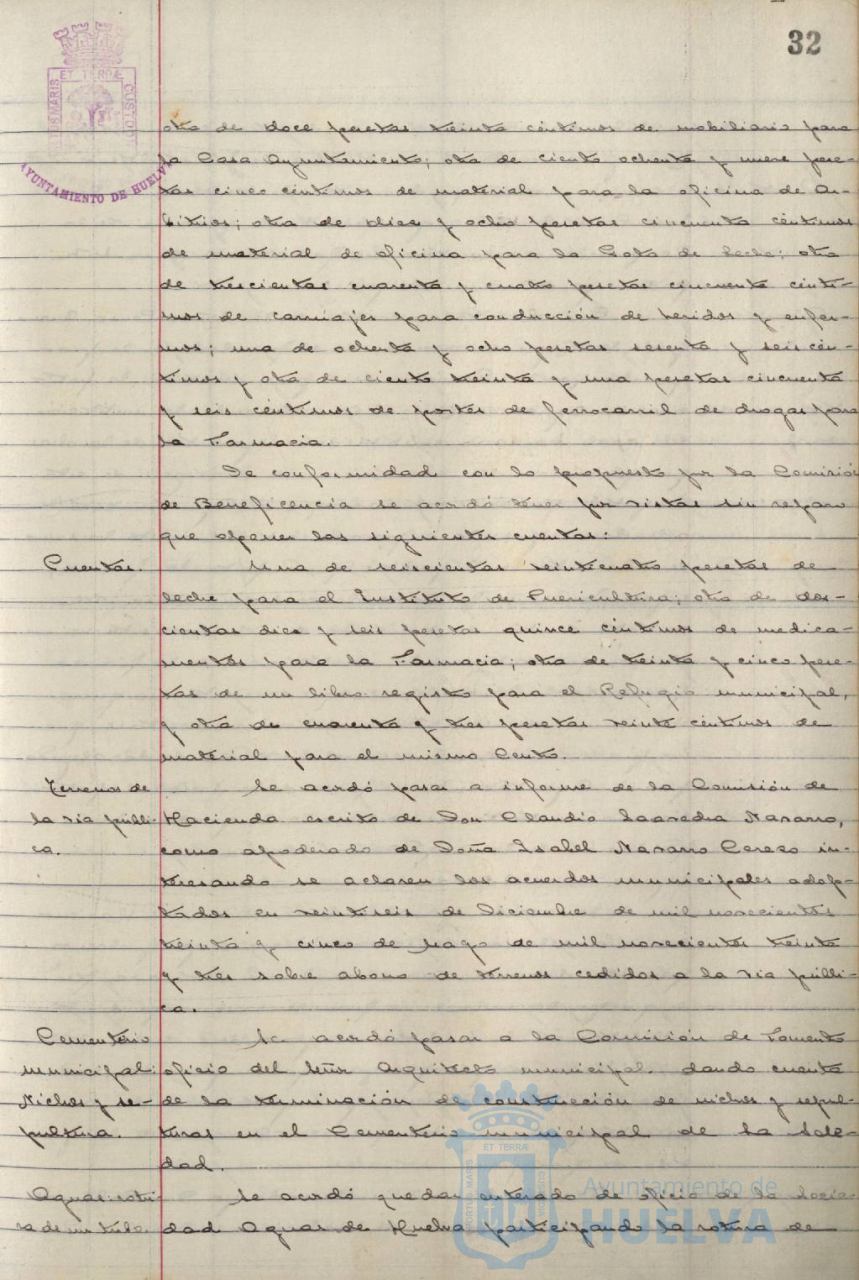 32
ET TERRÆ
MARIS
CUSTODI
AYUNTAMIENTO DE HUELVA
otra de doce pesetas treinta céntimos de mobiliario para
la Casa Ayuntamiento; otra de ciento ochenta y nueve pese-
tas cinco céntimos de material para la oficina de Ar-
bitrios; otra de diez y ocho pesetas cincuenta céntimos
de material de oficina para la Gota de Leche; otra
de trescientas cuarenta y cuatro pesetas cincuenta cénti-
mos de carruajes para conducción de heridos y enfer-
mos; una de ochenta y ocho pesetas sesenta y seis cén-
timos y otra de ciento treinta y una pesetas cincuenta
y seis céntimos de portes de ferrocarril de drogas para
la Farmacia.
De conformidad con lo propuesto por la Comisión
de Beneficencia se acordó tener por vistas sin reparo
que oponer las siguientes cuentas:
Cuentas.
Una de seiscientas veinticuatro pesetas de
leche para el Instituto de Puericultura; otra de dos-
cientas diez y seis pesetas quince céntimos de medica-
mentos para la Farmacia; otra de treinta y cinco pese-
tas de un libro registro para el Refugio municipal,
y otra de cuarenta y tres pesetas veinte céntimos de
material para el mismo Centro.
Terrenos de
la vía públi-
ca.
Se acordó pasar a informe de la Comisión de
Hacienda escrito de Don Claudio Saavedra Navarro,
como apoderado de Doña Isabel Navarro Cerezo in-
teresando se aclaren los acuerdos municipales adop-
tados en veintiseis de Diciembre de mil novecientos
treinta y cinco de Mayo de mil novecientos treinta
y tres sobre abono de terrenos cedidos a la vía públi-
ca.
Cementerio
municipal:
Nichos y se-
pultura.
Se acordó pasar a la Comisión de Fomento
oficio del Señor Arquitecto municipal dando cuenta
de la terminación de construcción de nichos y sepul-
turas en el Cementerio municipal de la Sole-
dad.
Aguas: rotu-
ra de un tubo.
Se acordó quedar enterado de oficio de la Socie-
dad Aguas de Huelva participando la rotura de
ET TERRÆ
PORTUS MARIS
CUSTODIO
Ayuntamiento de
HUELVA